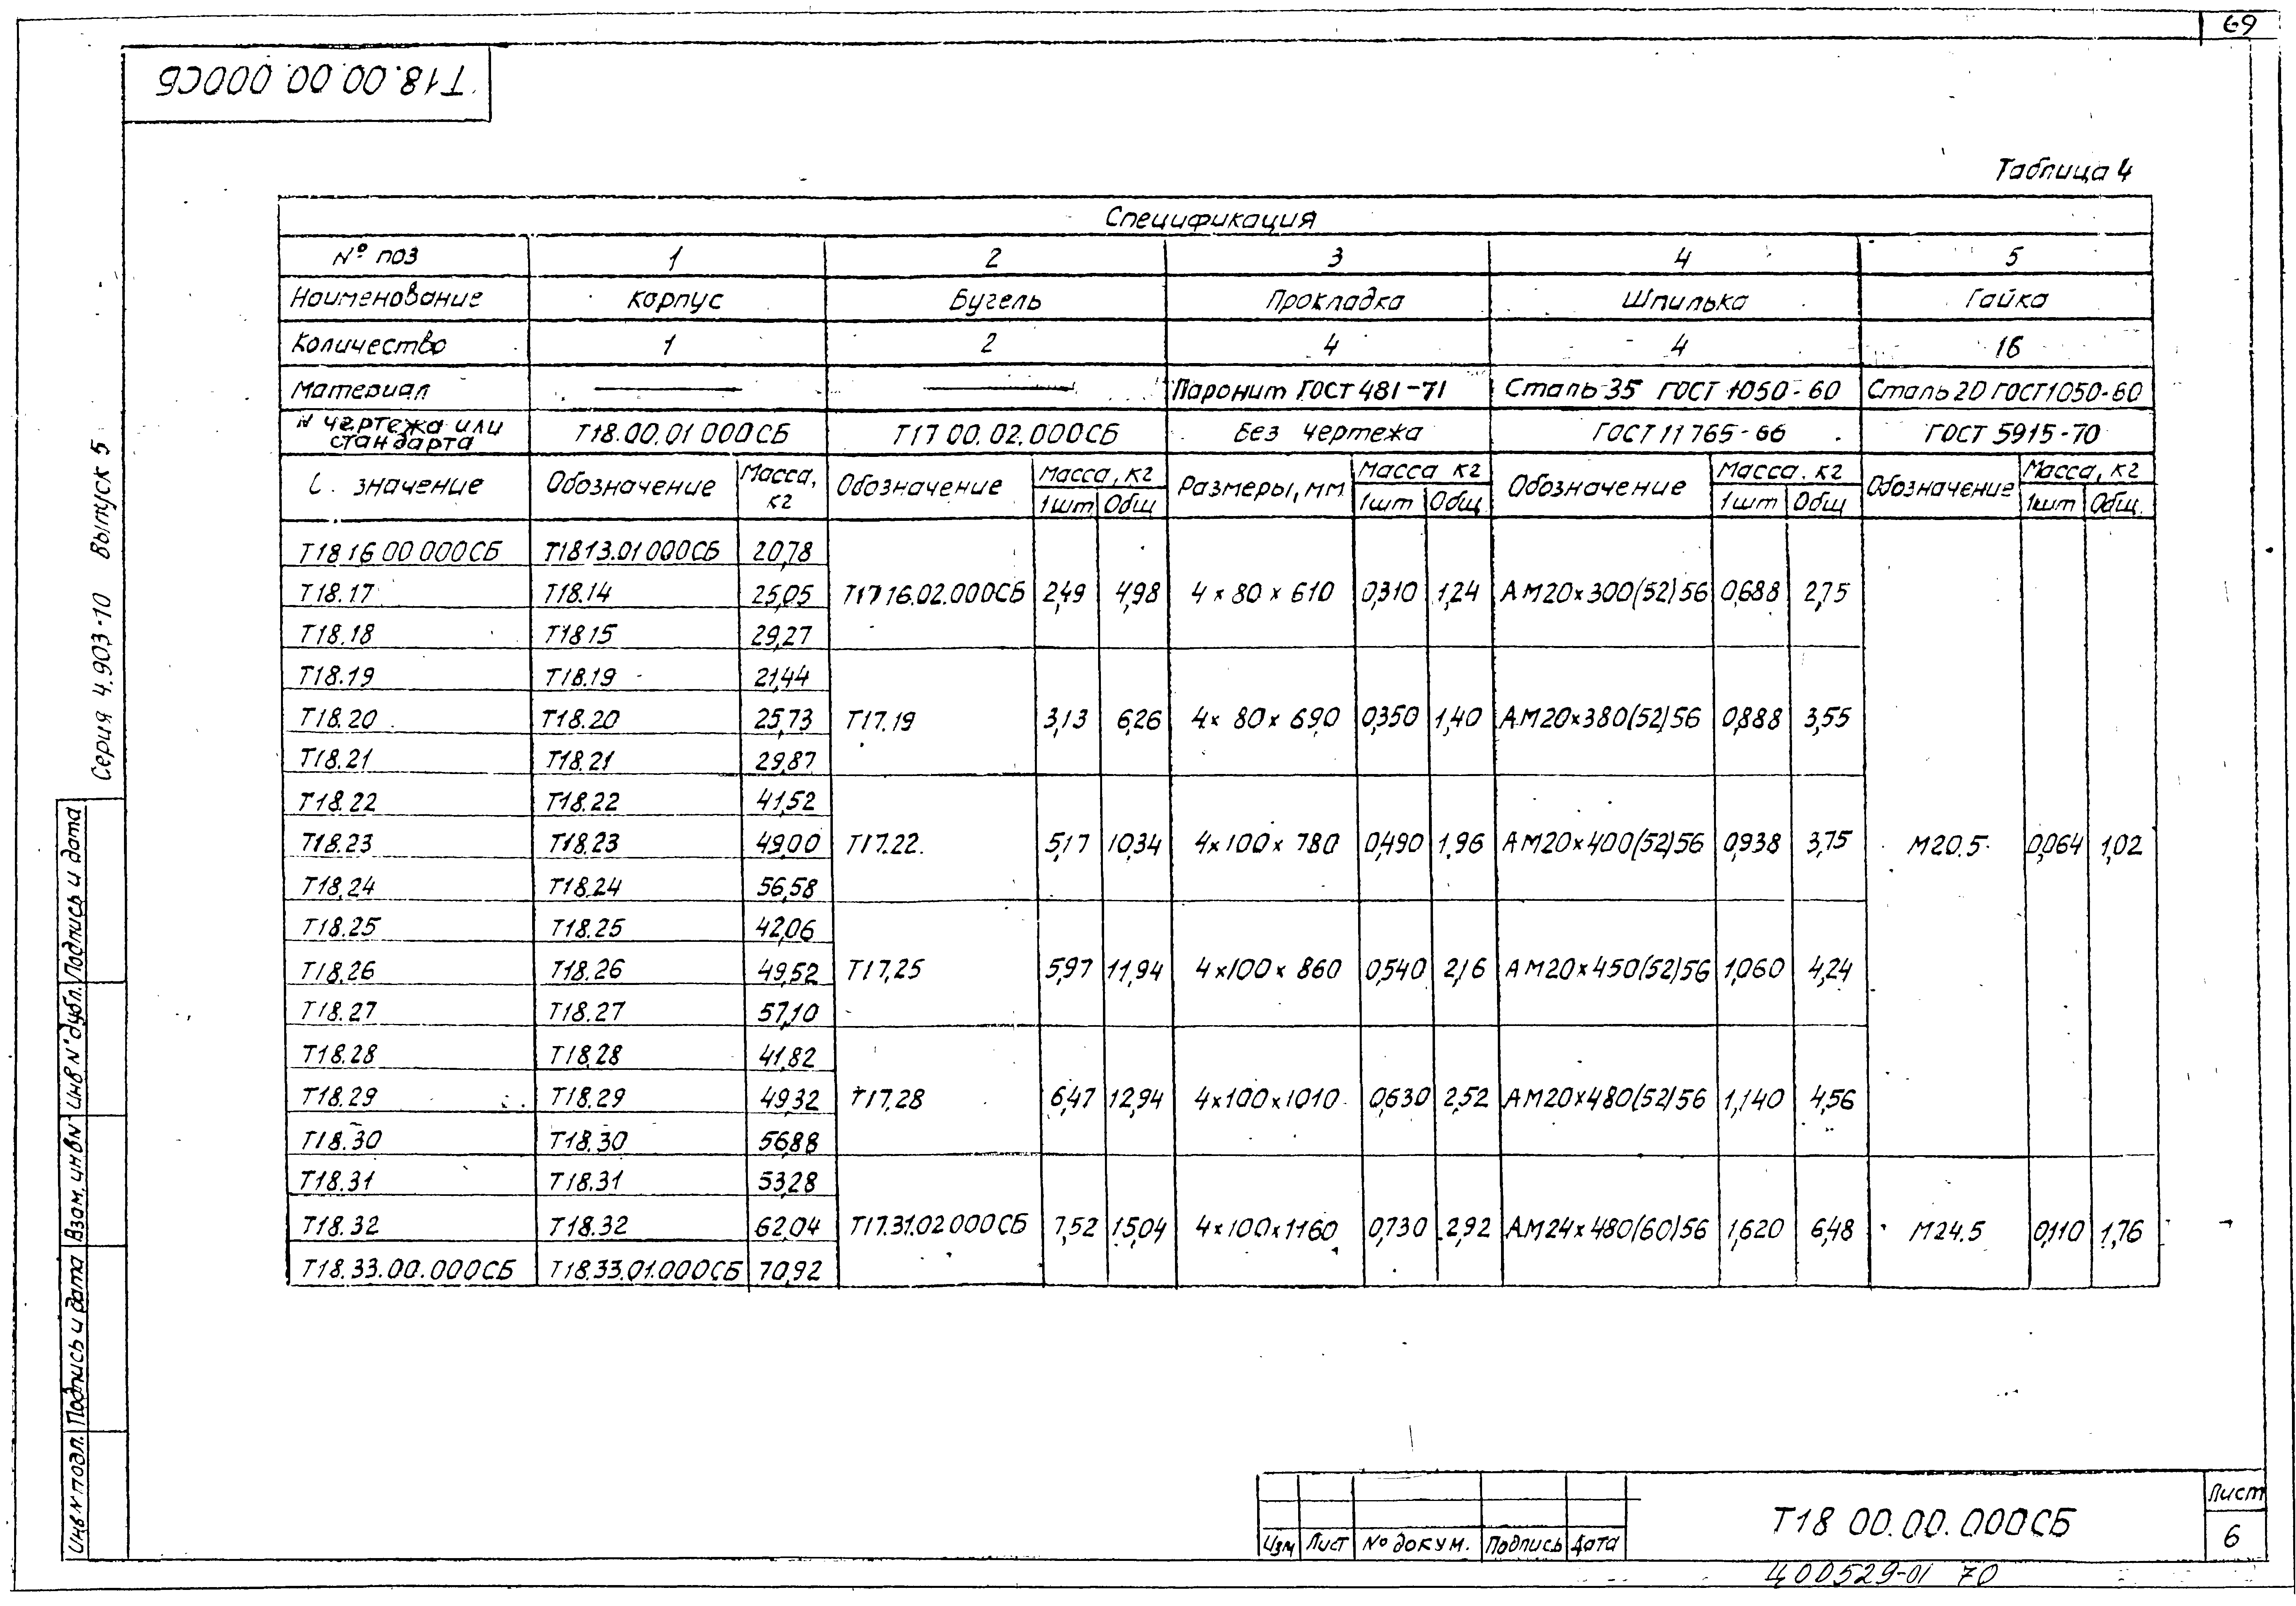 69
Т18.00.00.000СБ
Таблица 4
Спецификация
№ поз 1 2 3 4 5
Наименование Корпус Бугель Прокладка Шпилька Гайка
Количество 1 2 4 4 16
Материал Паронит ГОСТ 481-71 Сталь 35 ГОСТ 1050-60 Сталь 20 ГОСТ 1050-60
N чертежа или стандарта Т18.00.01 000СБ Т17 00.02.000СБ Без чертежа ГОСТ 11765-66 ГОСТ 5915-70
значение Обозначение Масса, кг Обозначение Масса, кг Размеры, мм Масса кг Обозначение Масса. кг Обозначение Масса, кг
1шт Общ 1шт Общ 1шт Общ 1шт Общ.
Т18 16 00 000СБ Т18 13.01 000СБ 20,78
Т18.17 Т18.14 25,05 Т17 16.02.000СБ 2,49 4,98 4 × 80 × 610 0,310 1,24 АМ20×300(52)56 0,688 2,75
Т18.18 Т18 15 29,27
Т18.19 Т18.19 21,44
Т18.20 Т18.20 25,73 Т17.19 3,13 6,26 4× 80 × 690 0,350 1,40 АМ20×380(52)56 0,888 3,55
Т18.21 Т18.21 29,87
Т18.22 Т18.22 41,52
Т18.23 Т18.23 49,00 Т17.22. 5,17 10,34 4×100× 780 0,490 1,96 АМ20×400(52)56 0,938 3,75 М20.5 0,064 1,02
Т18.24 Т18.24 56,58
Т18.25 Т18.25 42,06
Т18.26 Т18.26 49,52 Т17,25 5,97 11,94 4×100× 860 0,540 2,16 АМ20×450(52)56 1,060 4,24
Т18.27 Т18.27 57,10
Т18.28 Т18.28 41,82
Т18.29 Т18.29 49,32 Т17.28 6,47 12,94 4×100×1010 0,630 2,52 АМ20×480(52)56 1,140 4,56
Т18.30 Т18.30 56,88
Т18.31 Т18.31 53,28
Т18.32 Т18.32 62,04 Т17.31.02 000СБ 7,52 15,04 4×100×1160 0,730 2,92 АМ24×480(60)56 1,620 6,48 М24.5 0,110 1,76
Т18.33.00.000СБ Т18.33.01.000СБ 70,92
Серия 4.903-10 Выпуск 5
Инв N подл. Подпись и дата Взам. инв N Инв N° дубл. Подпись и дата
Изм Лист № докум. Подпись Дата
Т18 00.00.000СБ
Лист
6
400529-01 70